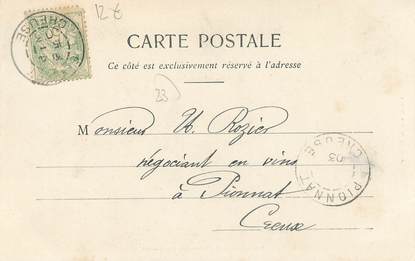 12€
CARTE POSTALE
Ce côté est exclusivement réservé à l'adresse
33
Monsieur H. Rozier
négociant en vins
à Pionnat
Creuse
PIONNAT
CREUSE
03
CREUSE